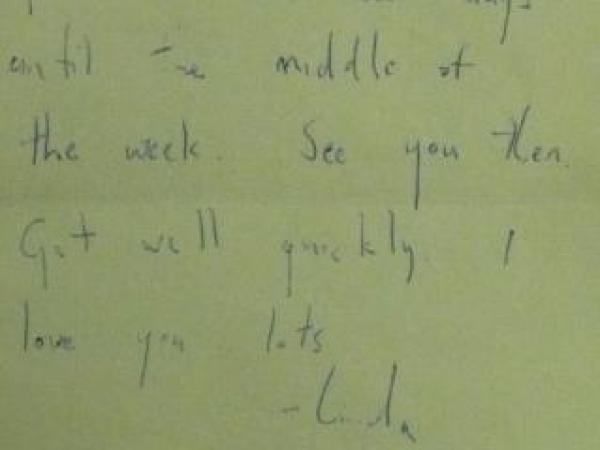 until the middle of
the week. See you then.
Get well quickly. I
love you lots
- Linda